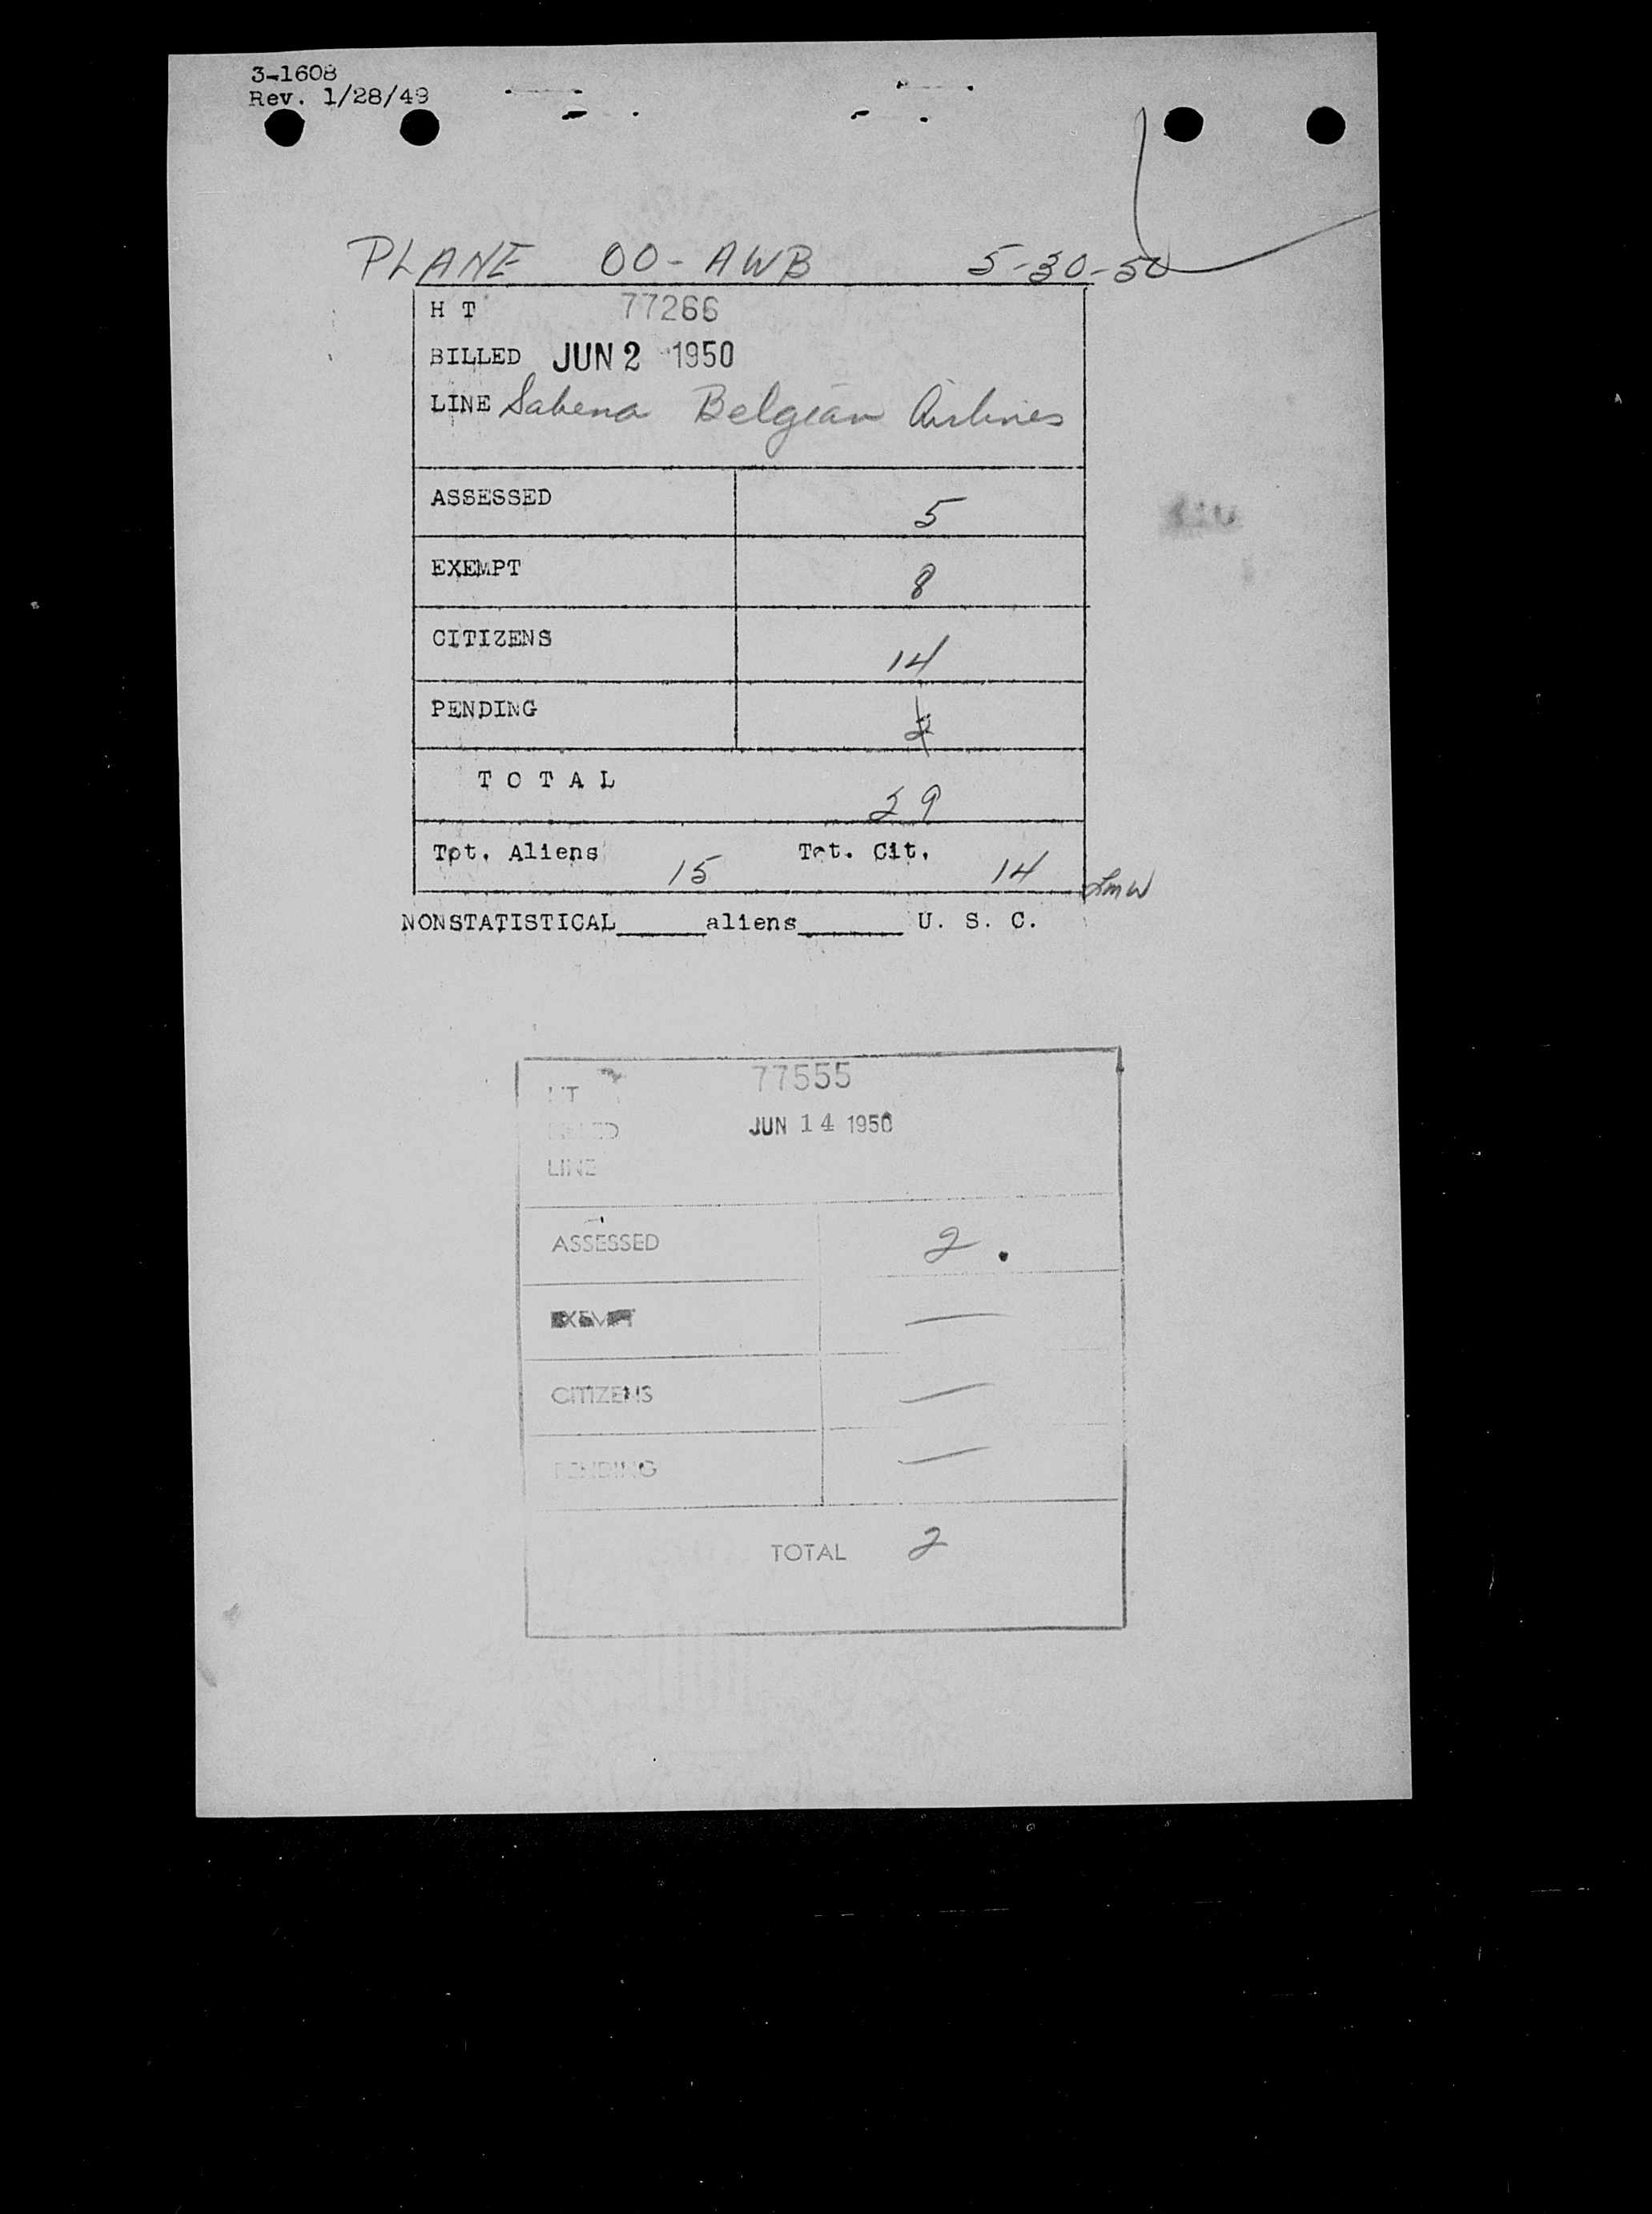 3-1608
Rev. 1/28/49
PLANE OO-AWB 5-30-50
H T 77266
BILLED JUN 2 1950
LINE Sabena Belgian Airlines
ASSESSED 5
EXEMPT 8
CITIZENS 14
PENDING 2
T O T A L 29
Tot. Aliens 15 Tot. Cit. 14
LMW
NONSTATISTICAL_____aliens______ U. S. C.
HT 77555
JUN 14 1950
LINE
ASSESSED 2.
EXEMPT —
CITIZENS —
PENDING —
TOTAL 2